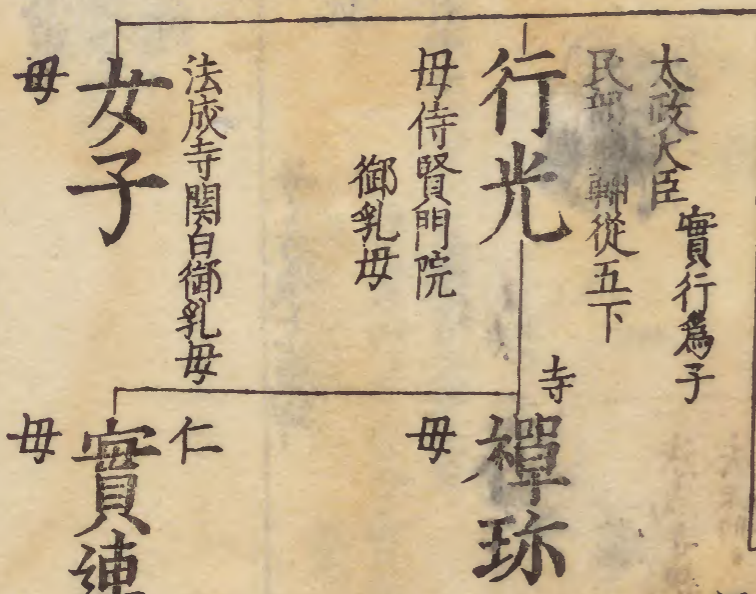 太政大臣
實行爲子
民部 輔從五下
行光
母侍賢門院
御乳母
法成寺関白御乳母
女子
母
寺
禅珎
母
仁
實連
母